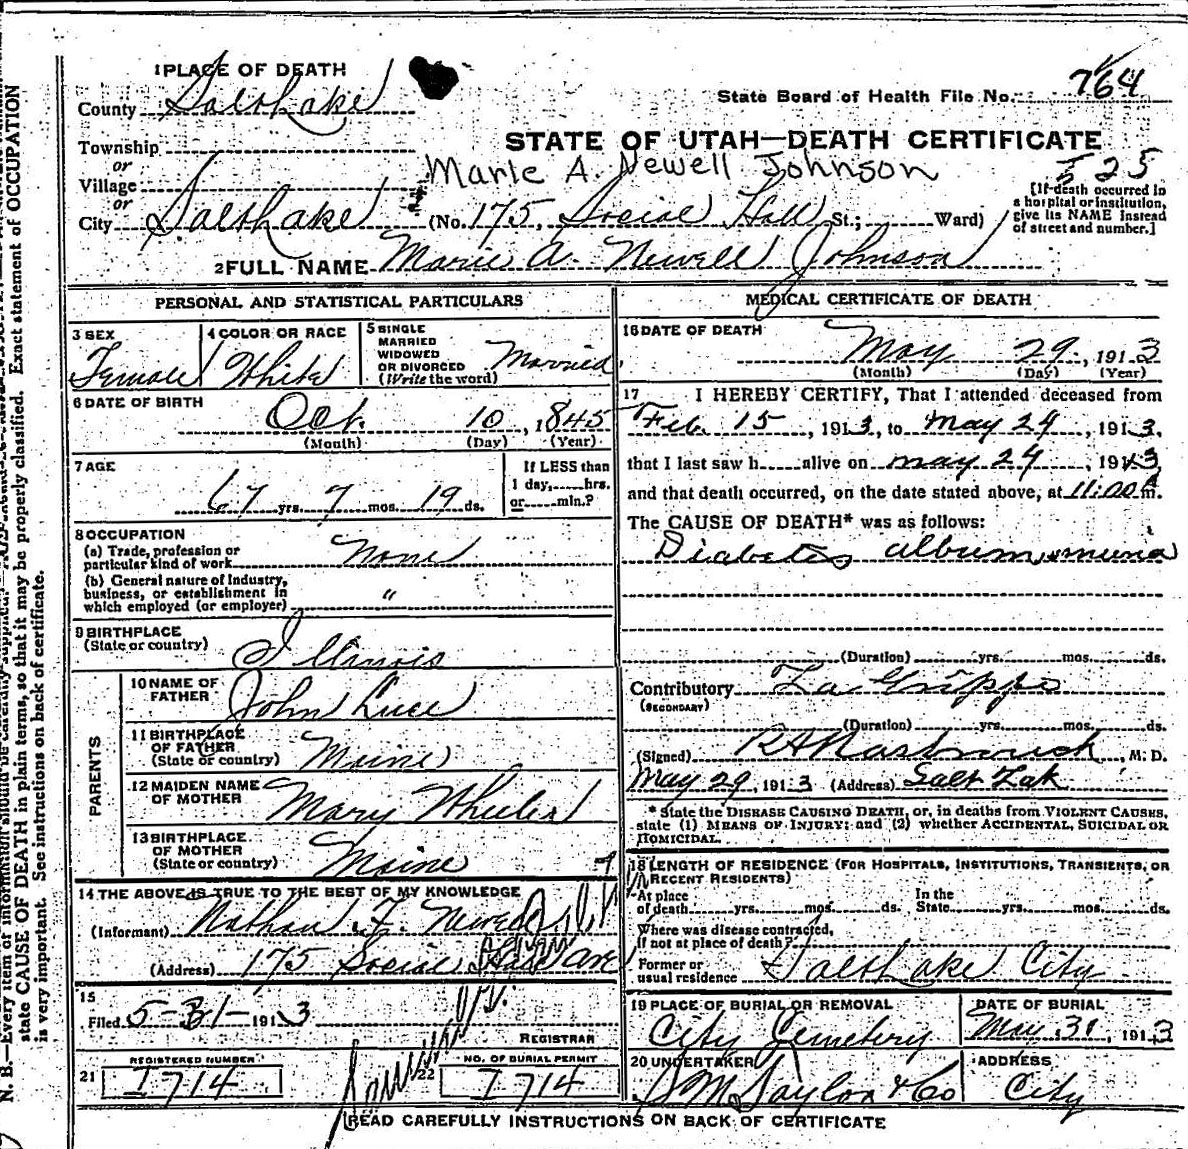 1 PLACE OF DEATH
County Salt Lake
State Board of Health File No. 764
Township
or
Village
or
City Salt Lake
STATE OF UTAH—DEATH CERTIFICATE
Marie A. Newell Johnson
I 25
(No. 175, Social Hall St.; Ward)
[If death occurred in
a hospital or institution,
give its NAME instead
of street and number.]
2 FULL NAME Marie A. Newell Johnson
PERSONAL AND STATISTICAL PARTICULARS
3 SEX
Female
4 COLOR OR RACE
White
5 SINGLE
MARRIED
WIDOWED
OR DIVORCED
(Write the word)
Married
6 DATE OF BIRTH
Oct. 10, 1845
(Month) (Day) (Year)
7 AGE
67 yrs. 7 mos. 19 ds.
If LESS than
1 day,......hrs.
or......min.?
8 OCCUPATION
(a) Trade, profession or
particular kind of work None
(b) General nature of Industry,
business, or establishment in
which employed (or employer) "
9 BIRTHPLACE
(State or country)
Illinois
PARENTS
10 NAME OF
FATHER
John Luce
11 BIRTHPLACE
OF FATHER
(State or country)
Maine
12 MAIDEN NAME
OF MOTHER
Mary Wheeler
13 BIRTHPLACE
OF MOTHER
(State or country)
Maine
14 THE ABOVE IS TRUE TO THE BEST OF MY KNOWLEDGE
(Informant) Nathan F. Newell
(Address) 175 Social Hall Ave
15
Filed 5-31- 1913
REGISTRAR
REGISTERED NUMBER
21 I 714
NO. OF BURIAL PERMIT
22 I 714
MEDICAL CERTIFICATE OF DEATH
16 DATE OF DEATH
May 29, 1913
(Month) (Day) (Year)
17 I HEREBY CERTIFY, That I attended deceased from
Feb. 15, 1913, to May 29, 1913,
that I last saw h alive on May 29, 1913,
and that death occurred, on the date stated above, at 11:00 A m.
The CAUSE OF DEATH* was as follows:
Diabetes
(Duration) yrs. mos. ds.
Contributory La Grippe
(SECONDARY)
(Duration) yrs. mos. ds.
(Signed) R A Hasbrouck M. D.
May 29, 1913 (Address) Salt Lak
* State the DISEASE CAUSING DEATH, or, in deaths from VIOLENT CAUSES,
state (1) MEANS OF INJURY; and (2) whether ACCIDENTAL, SUICIDAL OR
HOMICIDAL.
18 LENGTH OF RESIDENCE (FOR HOSPITALS, INSTITUTIONS, TRANSIENTS, OR
RECENT RESIDENTS)
At place
of death yrs. mos. ds.
In the
State yrs. mos. ds.
Where was disease contracted,
if not at place of death?
Former or
usual residence Salt Lake City
19 PLACE OF BURIAL OR REMOVAL
City Cemetery
DATE OF BURIAL
May 31, 1913
20 UNDERTAKER
S M Taylor & Co
ADDRESS
City
READ CAREFULLY INSTRUCTIONS ON BACK OF CERTIFICATE
state CAUSE OF DEATH in plain terms, so that it may be properly classified. Exact statement of OCCUPATION
is very important. See instructions on back of certificate.